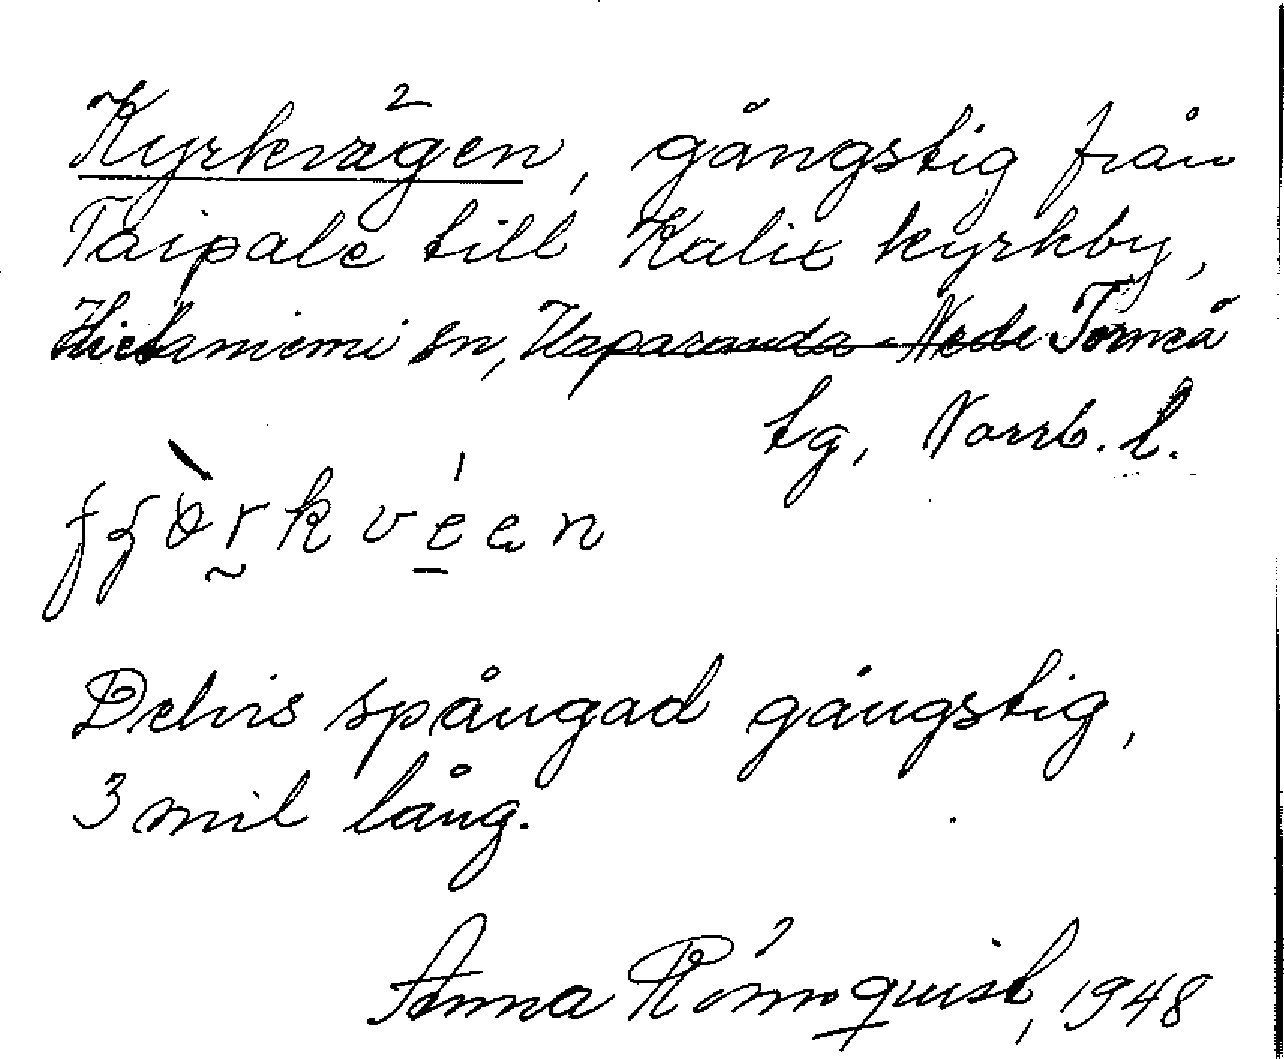 Kyrkvägen, gångstig från
Taipale till Kalix kyrkby,
Hietaniemi sn, Haparanda Nede Torneå
tg, Norrb. l.
Delvis spångad gångstig,
3 mil lång.
Anna Rönnquist, 1948